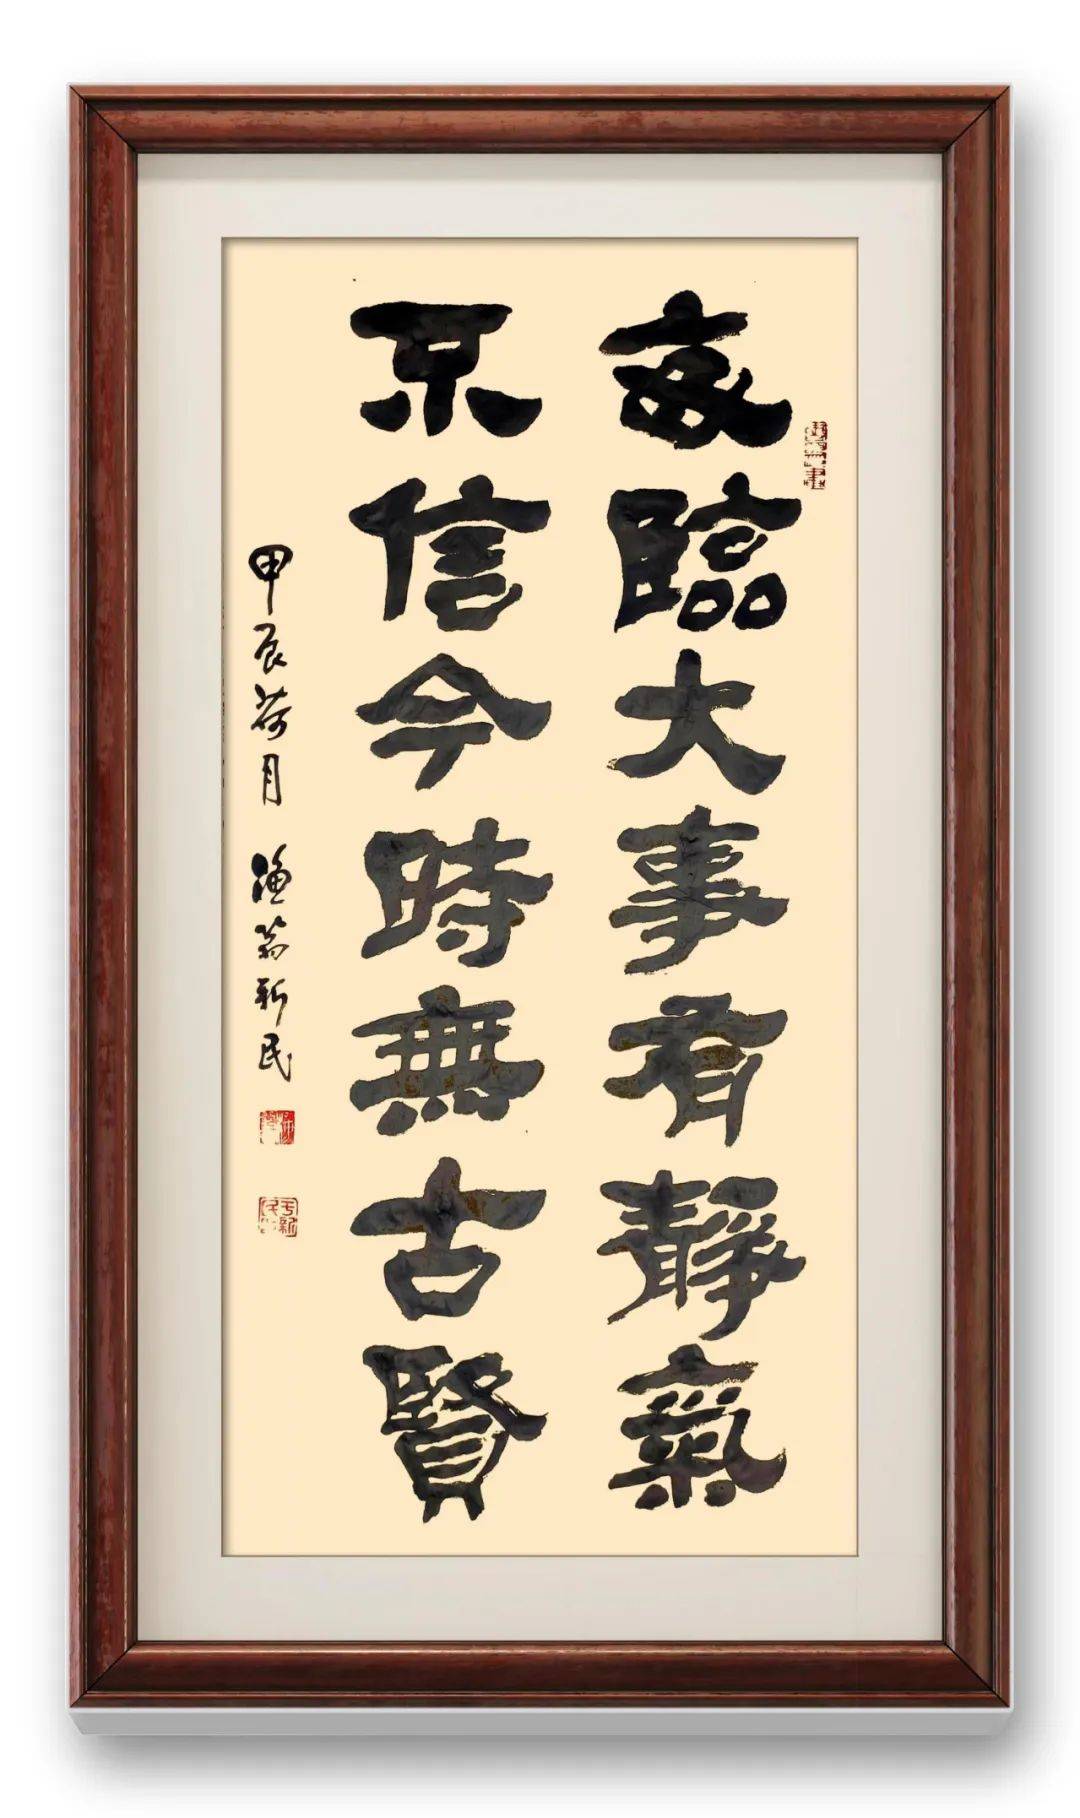 每臨大事有靜氣
不信今時無古賢
甲辰荷月 漁翁新民